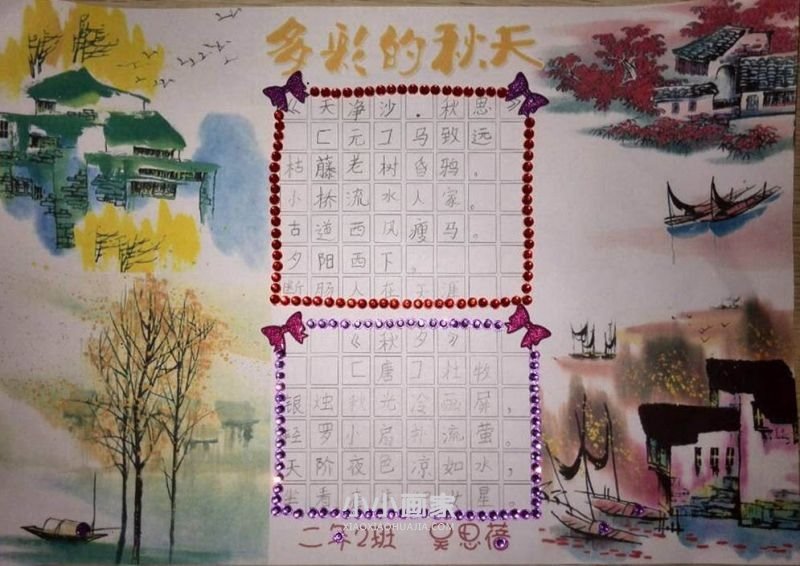 多彩的秋天
《天净沙．秋思》
[元]马致远
枯藤老树昏鸦，
小桥流水人家。
古道西风瘦马。
夕阳西下。
断肠人在天涯
《秋夕》
[唐]杜牧
银烛秋光冷画屏，
轻罗小扇扑流萤。
天阶夜色凉如水，
坐看 星。
小小画家
XIAOXIAOHUAJIA.COM
二年2班 吴思蓓